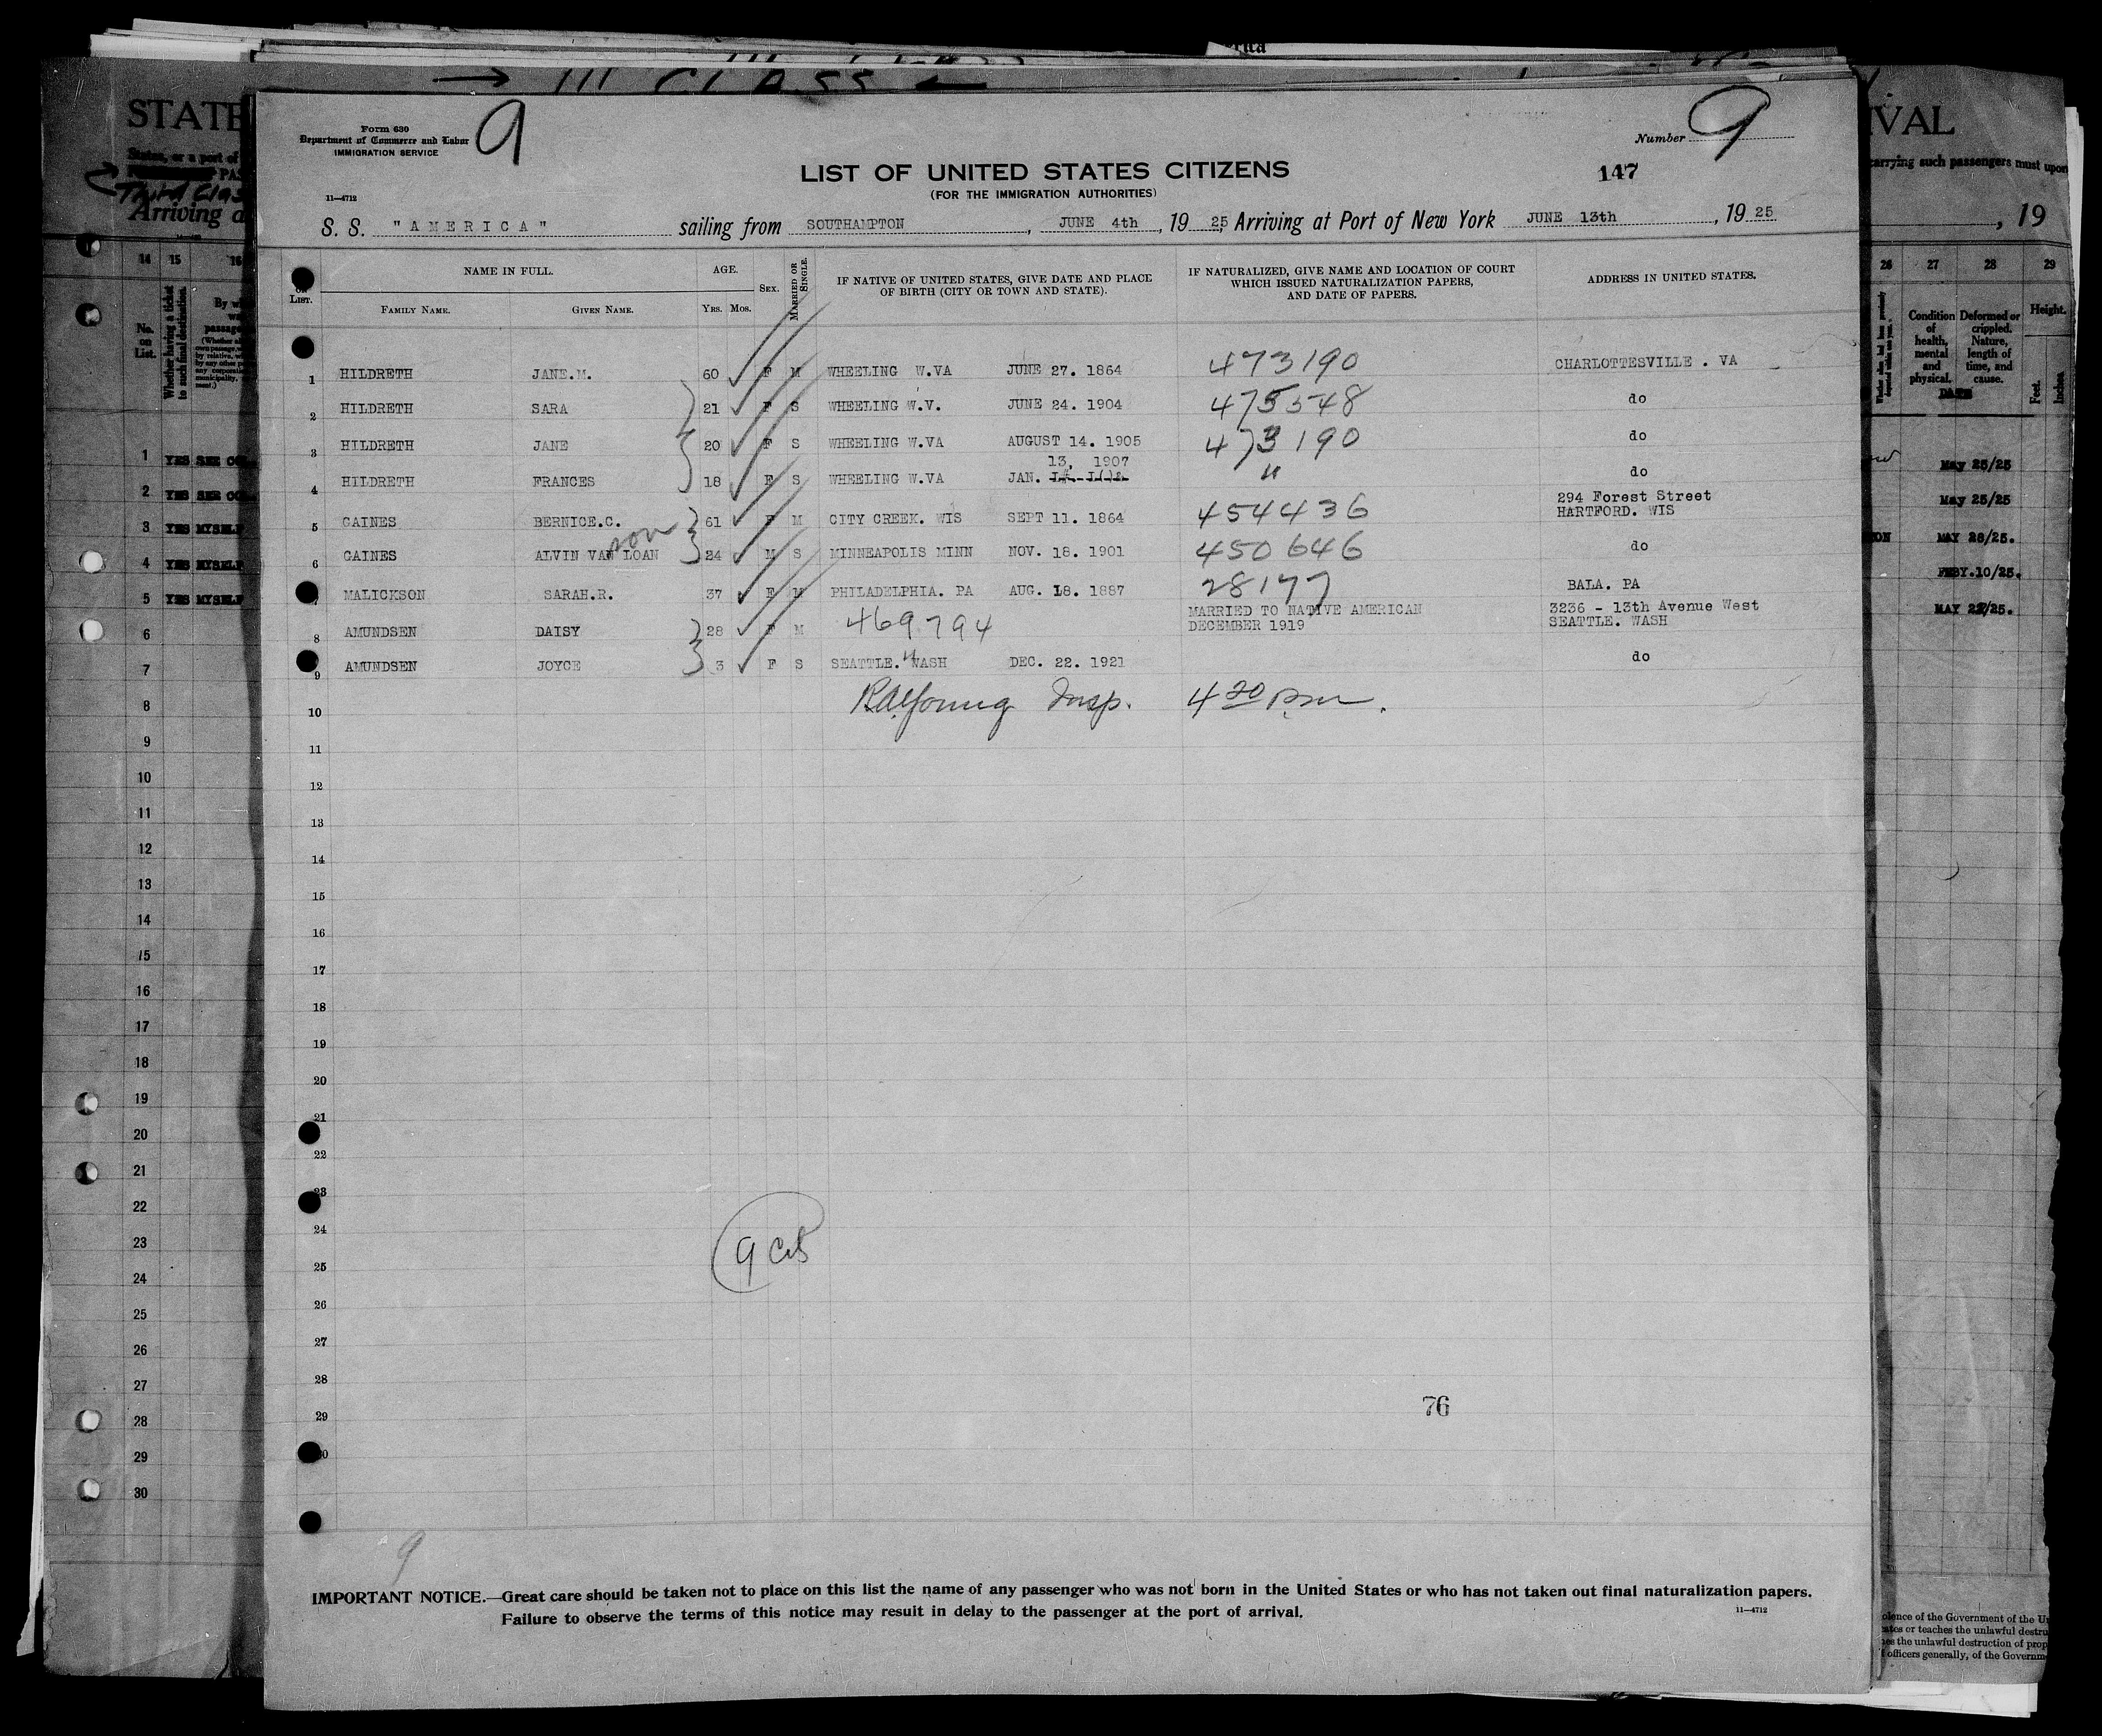 → III CLASS ←
STATE
Third Class
Arriving a
Form 630
Department of Commerce and Labor
IMMIGRATION SERVICE
9
Number 9
147
LIST OF UNITED STATES CITIZENS
(FOR THE IMMIGRATION AUTHORITIES)
11—4712
S. S. "AMERICA" sailing from SOUTHAMPTON, JUNE 4th, 1925, Arriving at Port of New York JUNE 13th, 1925
LIST. NAME IN FULL. AGE. SEX. MARRIED OR SINGLE. IF NATIVE OF UNITED STATES, GIVE DATE AND PLACE OF BIRTH (CITY OR TOWN AND STATE). IF NATURALIZED, GIVE NAME AND LOCATION OF COURT WHICH ISSUED NATURALIZATION PAPERS, AND DATE OF PAPERS. ADDRESS IN UNITED STATES.
FAMILY NAME. GIVEN NAME. YRS. MOS.
1 HILDRETH JANE.M. 60 F M WHEELING W.VA JUNE 27. 1864 473190 CHARLOTTESVILLE . VA
2 HILDRETH SARA 21 F S WHEELING W.V. JUNE 24. 1904 475548 do
3 HILDRETH JANE 20 F S WHEELING W.VA AUGUST 14. 1905 473190 do
13, 1907
4 HILDRETH FRANCES 18 F S WHEELING W.VA JAN. " do
294 Forest Street
5 GAINES BERNICE.C. 61 F M CITY CREEK. WIS SEPT 11. 1864 454436 HARTFORD. WIS
son
6 GAINES ALVIN VAN LOAN 24 M S MINNEAPOLIS MINN NOV. 18. 1901 450646 do
7 MALICKSON SARAH.R. 37 F M PHILADELPHIA. PA AUG. 18. 1887 28177 BALA. PA
MARRIED TO NATIVE AMERICAN 3236 - 13th Avenue West
8 AMUNDSEN DAISY 28 F M 469794 DECEMBER 1919 SEATTLE. WASH
"
9 AMUNDSEN JOYCE 3 F S SEATTLE. WASH DEC. 22. 1921 do
10 RA Young Insp. 4 20 p.m.
11
12
13
14
15
16
17
18
19
20
21
22
23
24
9 cits
25
26
27
28
29
76
30
9
IMPORTANT NOTICE.—Great care should be taken not to place on this list the name of any passenger who was not born in the United States or who has not taken out final naturalization papers.
Failure to observe the terms of this notice may result in delay to the passenger at the port of arrival.
11—4712
14 15 16
No. on List.
Whether having a ticket to such final destination.
1 YES SEE
2 YES SEE
3 YES MYSELF
4 YES MYSELF
5 YES MYSELF
6
7
8
9
10
11
12
13
14
15
16
17
18
19
20
21
22
23
24
25
26
27
28
29
30
IVAL
carrying such passengers must upon
, 19
26 27 28 29
Condition of health, mental and physical.
Deformed or crippled. Nature, length of time, and cause.
Height.
Feet. Inches.
DATE
May 25/25
May 25/25
MAY 28/25.
FEBY.10/25.
MAY 22/25.
olence of the Government of the U
ates or teaches the unlawful destru
es the unlawful destruction of prop
officers generally, of the Governm